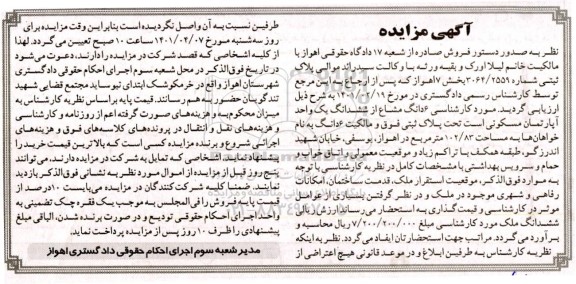 آگهی مزایده
نظر به صدور دستور فروش صادره از شعبه ۱۷ دادگاه حقوقی اهواز با
مالکیت خانم لیلا اورک و بقیه ورثه با وکالت سیدراند موالی پلاک
ثبتی شماره ۳۰۶۲/۲۵۵۹ بخش ۷ اهواز که پس از ارجاع به این مرجع
توسط کارشناس رسمی دادگستری در مورخ ۱۴۰۰/۰۲/۱۹ به شرح ذیل
ارزیابی گردید. مورد کارشناسی ۶ دانگ مشاع از ششدانگ یک واحد
آپارتمان مسکونی است تحت پلاک ثبتی فوق و مالکیت ۶ دانگ به نام
خواهان‌ها به مساحت ۱۰۲/۸۳ مترمربع در اهواز، یوسفی، خیابان شهید
اندرزگو، طبقه همکف با تراکم زیاد و موقعیت معمولی، اتاق خواب،
حمام و سرویس بهداشتی با مشخصات کامل در نظریه کارشناسی با توجه
به موارد فوق‌الذکر، موقعیت استقرار ملک، قدمت ساختمان، امکانات
رفاهی و شهری موجود در ملک و در نظر گرفتن بسیاری از عوامل
موثر در کارشناسی و قیمت‌گذاری به استحضار می‌رساند ارزش ریالی
ششدانگ ملک مورد کارشناسی مبلغ ۷/۲۰۰/۲۰۰/۰۰۰ ریال محاسبه و
برآورد می‌گردد. مراتب جهت استحضارتان ایفاد می‌گردد. نظر به اینکه
نظریه کارشناس به طرفین ابلاغ و در موعد قانونی هیچ اعتراضی از
طرفین نسبت به آن واصل نگردیده است بنابراین وقت مزایده برای
روز سه‌شنبه مورخ ۱۴۰۱/۰۲/۰۷ ساعت ۱۰ صبح تعیین می‌گردد. لهذا
از کلیه اشخاصی که قصد شرکت در مزایده را دارند، دعوت می‌شود
در تاریخ فوق‌الذکر در محل شعبه سوم اجرای احکام حقوقی دادگستری
شهرستان اهواز واقع در خرمکوشک ابتدای نیوساید مجتمع قضایی شهید
تندگویان حضور به هم رسانند. قیمت پایه براساس نظریه کارشناس به
میزان محکوم‌به و هزینه‌های صورت گرفته اعم از روزنامه و کارشناسی
و هزینه‌های نقل و انتقال در پرونده‌های کلاسه‌های فوق و هزینه‌های
اجرائی شروع و برنده مزایده کسی است که بالاترین قیمت خرید را
پیشنهاد نماید. اشخاصی که تمایل به شرکت در مزایده دارند، می‌توانند
پنج روز قبل از مزایده از اموال مورد نظر به نشانی فوق‌الذکر بازدید
نمایند. ضمنا کلیه شرکت‌کنندگان در مزایده می‌بایست ۱۰ درصد از
قیمت پایه فروش را فی‌المجلس به موجب یک فقره چک تضمینی به
واحد اجرای احکام حقوقی تودیع و در صورت برنده شدن، الباقی مبلغ
پیشنهادی را ظرف ۱۰ روز پس از مزایده پرداخت نماید.
مدیر شعبه سوم اجرای احکام حقوقی دادگستری اهواز